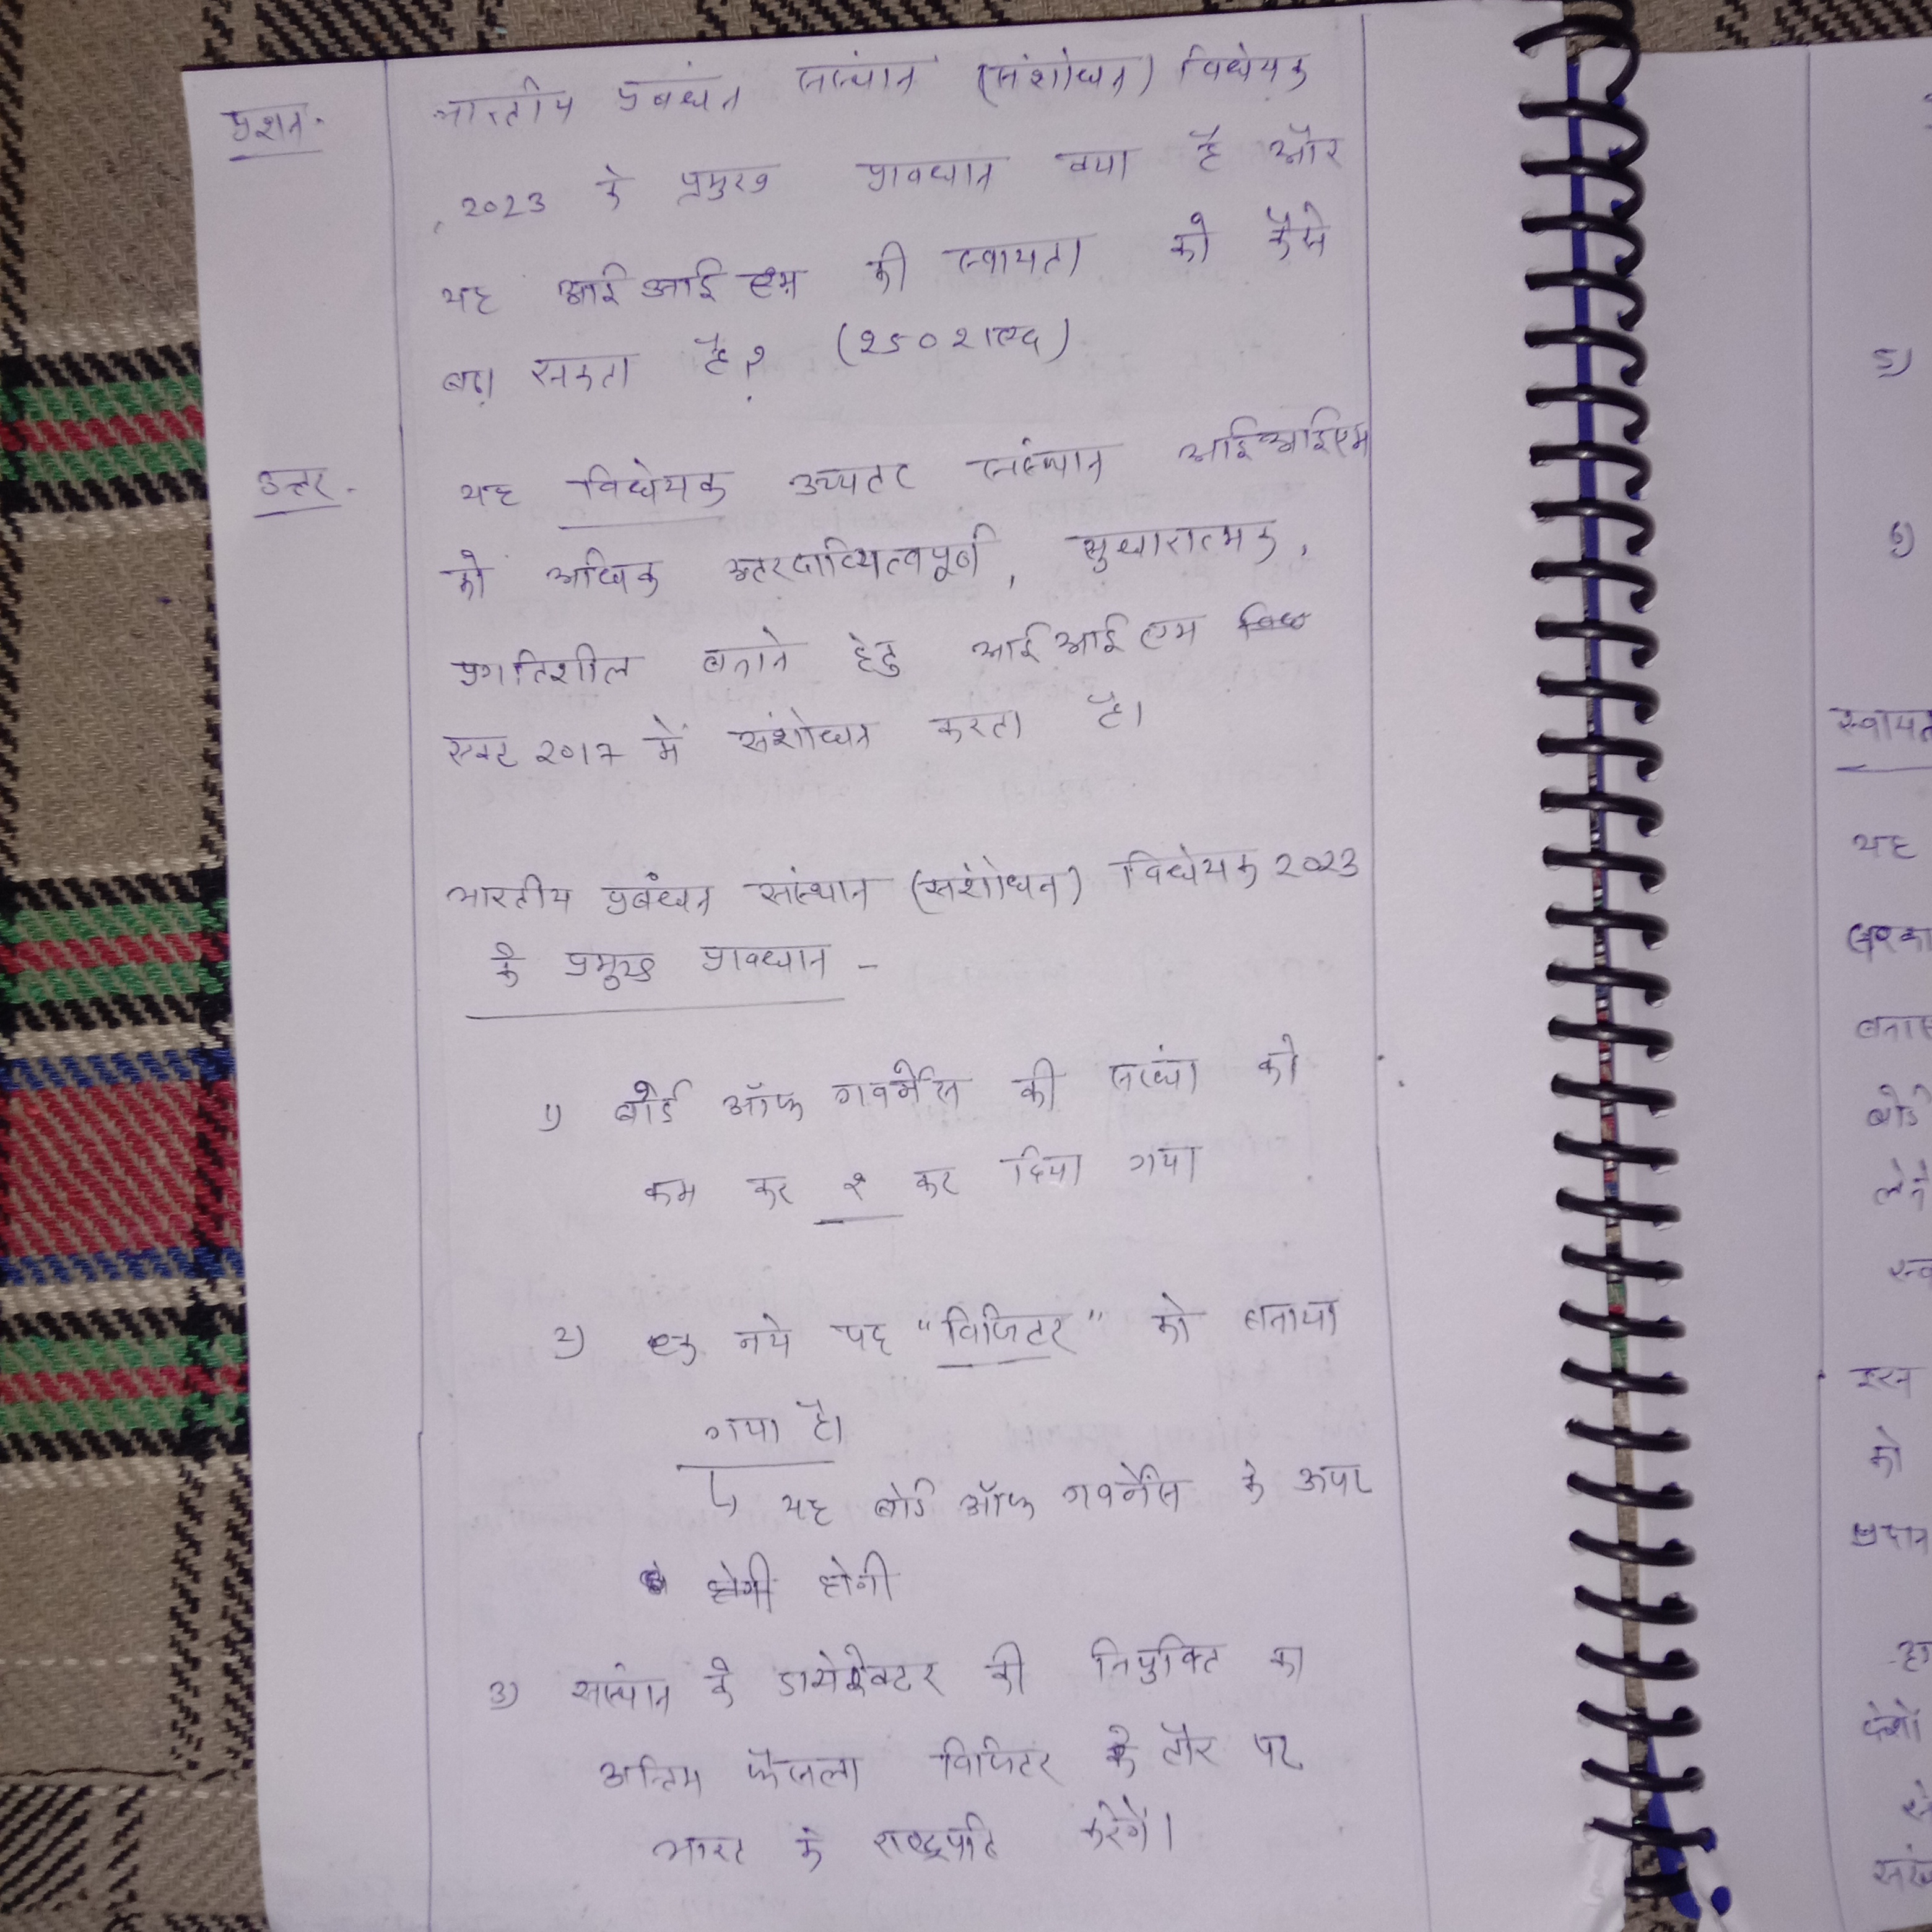 प्रशन.
भारतीय प्रबंधन संस्थान (संशोधन) विधेयक
2023 के प्रमुख प्रावधान क्या है और
यह आई आई एम की स्वायता को कैसे
बढ़ा सकता है? (250 शब्द)
उत्तर -
यह विधेयक उच्चतर संस्थान आईआईएम
को अधिक उत्तरदायित्वपूर्ण, सुधारात्मक,
प्रगतिशील बनाने हेतु आई आई एम
एक्ट 2017 में संशोधन करता है।
भारतीय प्रबंधन संस्थान (संशोधन) विधेयक 2023
के प्रमुख प्रावधान -
1) बोर्ड ऑफ गवर्नेंस की को
कम कर कर दिया गया
2) एक नये पद "विजिटर" को बनाया
गया है।
↳ यह बोर्ड ऑफ गवर्नेंस के ऊपर
होगी होगी
3) संस्थान के डायरेक्टर की नियुक्ति का
अन्तिम फैसला विजिटर के तौर पर
भारत के राष्ट्रपति करेंगें।
5)
6)
यह
बोर्ड
को